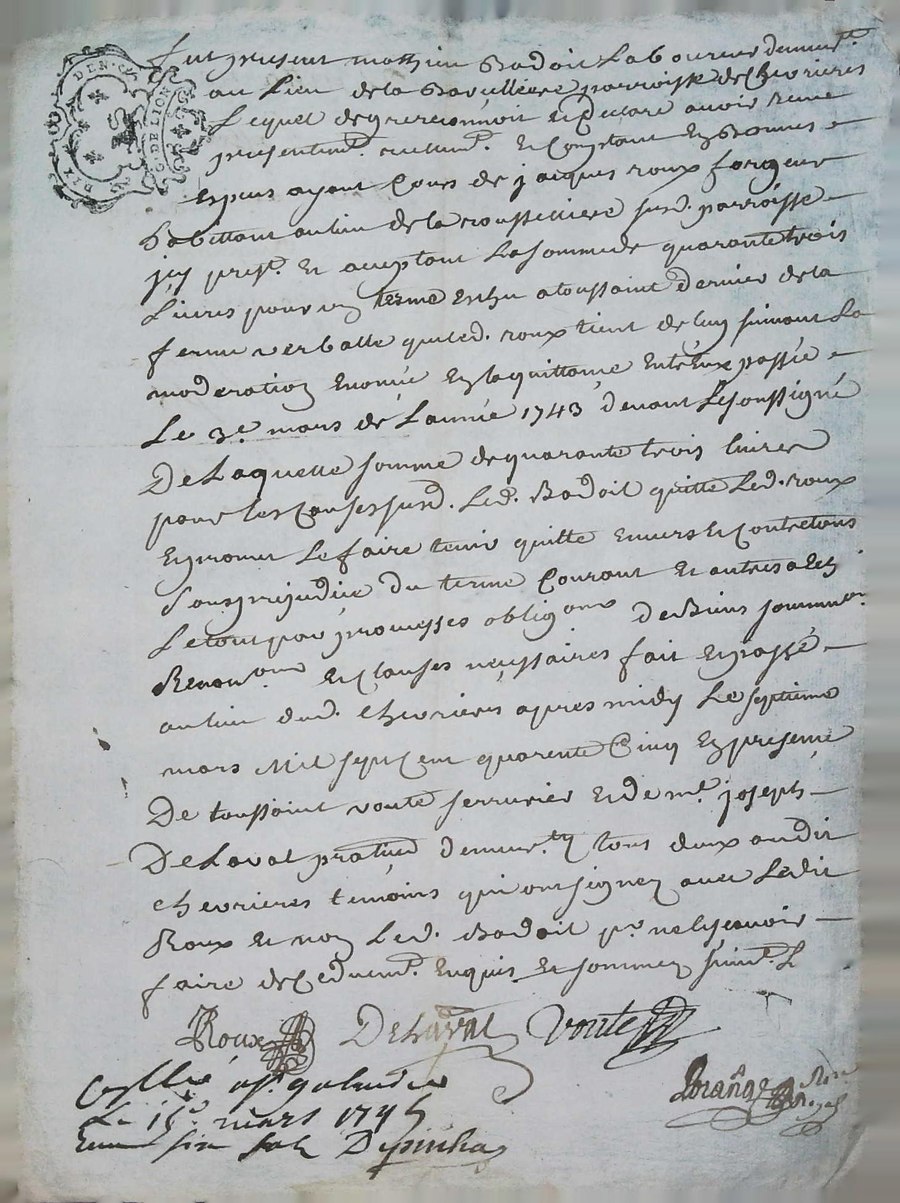 DIX DEN. G. DE LION
fut present mathieu Badoit Laboureur demeurt
au Lieu de la Bavilliere parroisse de Chevrieres
Lequel de gré reconnoit et declare avoir Reçu
presentemt. reellemt. Et Contant En Bonnes
Espeus ayant Cours de jacques roux forgeur
habittant au lieu de la roussilliere susd. parroisse
jcy prest. Et acceptant La somme de quarante trois
Livres pour un terme Eschu a toussaint dernier de la
ferme verballe que led. roux tient de luy suivant La
moderation Enoncée En la quittance Entr'Eux passée
Le 3e. mars de L'année 1743 devant Le soussigné
De Laquelle somme de quarante trois livres
pour les Causes susd. Led. Badoit quitte Led. roux
Et promet Le faire tenir quitte Envers Et Contre tous
Sans prejudice du terme Courant Et autres
Le tout par promesses obligons de Biens
Renonons Et Clauses necessaires fait Et passé
au lieu dud. Chevrieres apres midy Le septieme
mars Mil sept Cent quarente Cinq En presence
De toussaint voute serrurier Et de me. joseph
De Laval praticien demeurts tous deux au dit
chevrieres temoins qui ont signez avec Ledit
Roux Et non Led. Badoit pr. ne le sçavoir
faire de Ce duemt. Enquis Et sommez suivt. L
Roux DeLaval Voute
a st. galmier
Le 15e. mars 1745
Depinhac